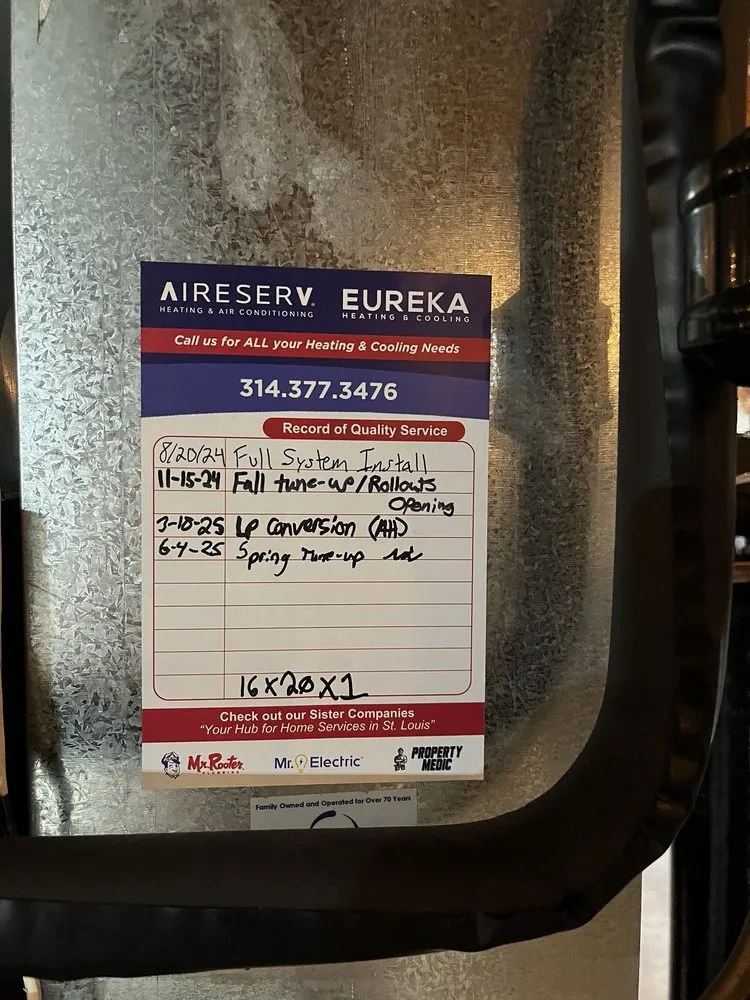 AIRESERV® EUREKA
HEATING & AIR CONDITIONING HEATING & COOLING
Call us for ALL your Heating & Cooling Needs
314.377.3476
Record of Quality Service
8/20/24 Full System Install
11-15-24 Fall tune-up/Rollouts
Opening
3-18-25 LP Conversion (AH)
6-4-25 Spring Tune-up
16x20x1
Check out our Sister Companies
"Your Hub for Home Services in St. Louis"
Mr. Rooter PLUMBING Mr. Electric PROPERTY
MEDIC
Family Owned and Operated for Over 70 Years